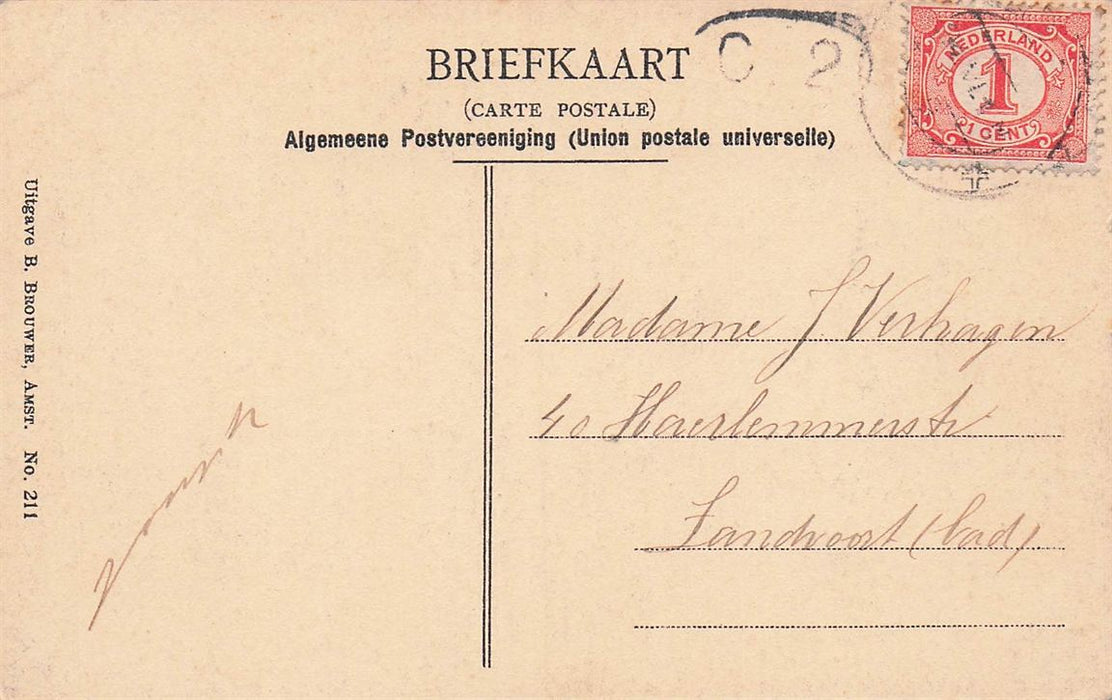 BRIEFKAART
(CARTE POSTALE)
Algemeene Postvereeniging (Union postale universelle)
C 2
NEDERLAND
1
1 CENT
Uitgave B. BROUWER, AMST. No. 211
Madame J Verhagen
40 Haerlemmerstr
Zandvoort (bad)